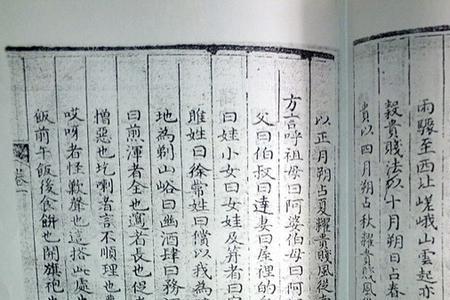 雨驟至西辻嵯峨山雲起亦
穀貴賤法以十月朔日占春
貴以四月朔占秋糶貴賤風
以正月朔占夏糶貴賤風從
方言呼祖母曰阿婆伯母曰阿
父曰伯叔曰達妻曰屋裡的
曰娃小女曰女娃反弁者曰
雎姓曰徐嘗姓曰償以我為
地為剃山峪曰幽酒肆曰務
曰煎渾者全也邁者長也
憎惡也圪喇者言不順理也
哎呀者怪歎聲也這搭此處也
飯前午飯後食餅也開旗袍
卷一